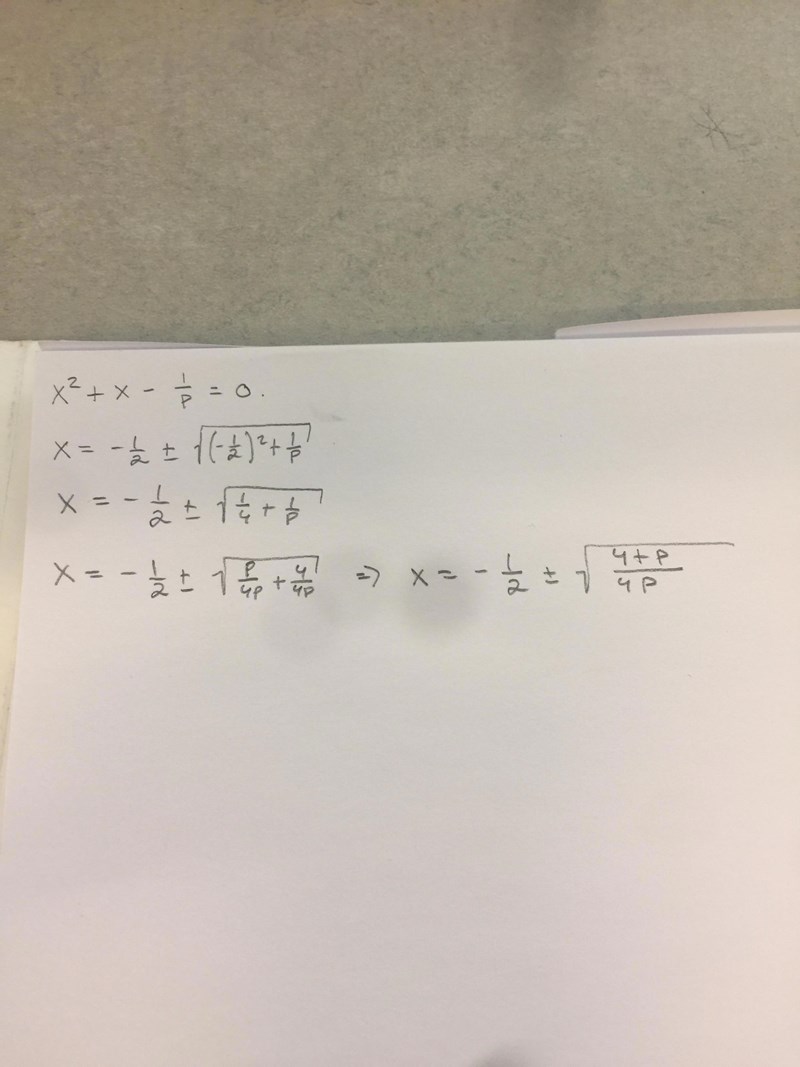 x² + x - 1/p = 0.
x = -1/2 ± √((-1/2)² + 1/p)
x = -1/2 ± √(1/4 + 1/p)
x = -1/2 ± √(p/4p + 4/4p) => x = -1/2 ± √((4+p)/4p)